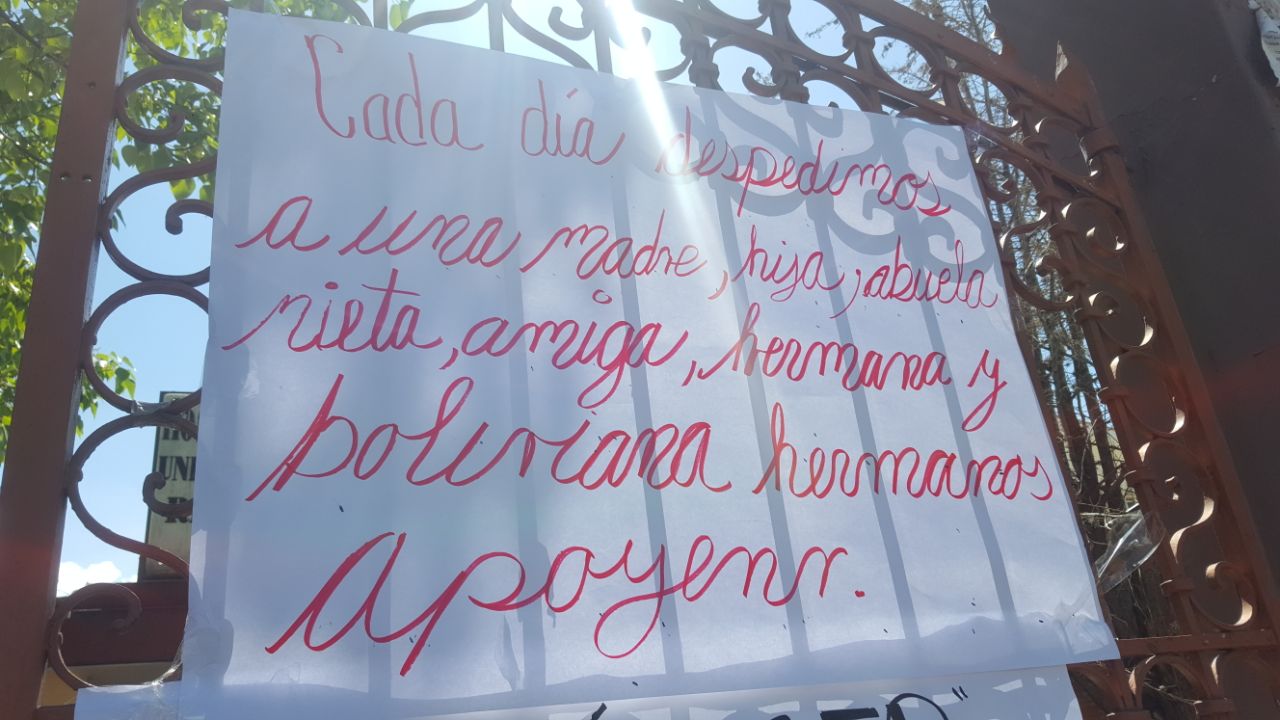 Cada día despedimos
a una madre, hija, abuela
nieta, amiga, hermana y
boliviana hermanos
apoyenr.